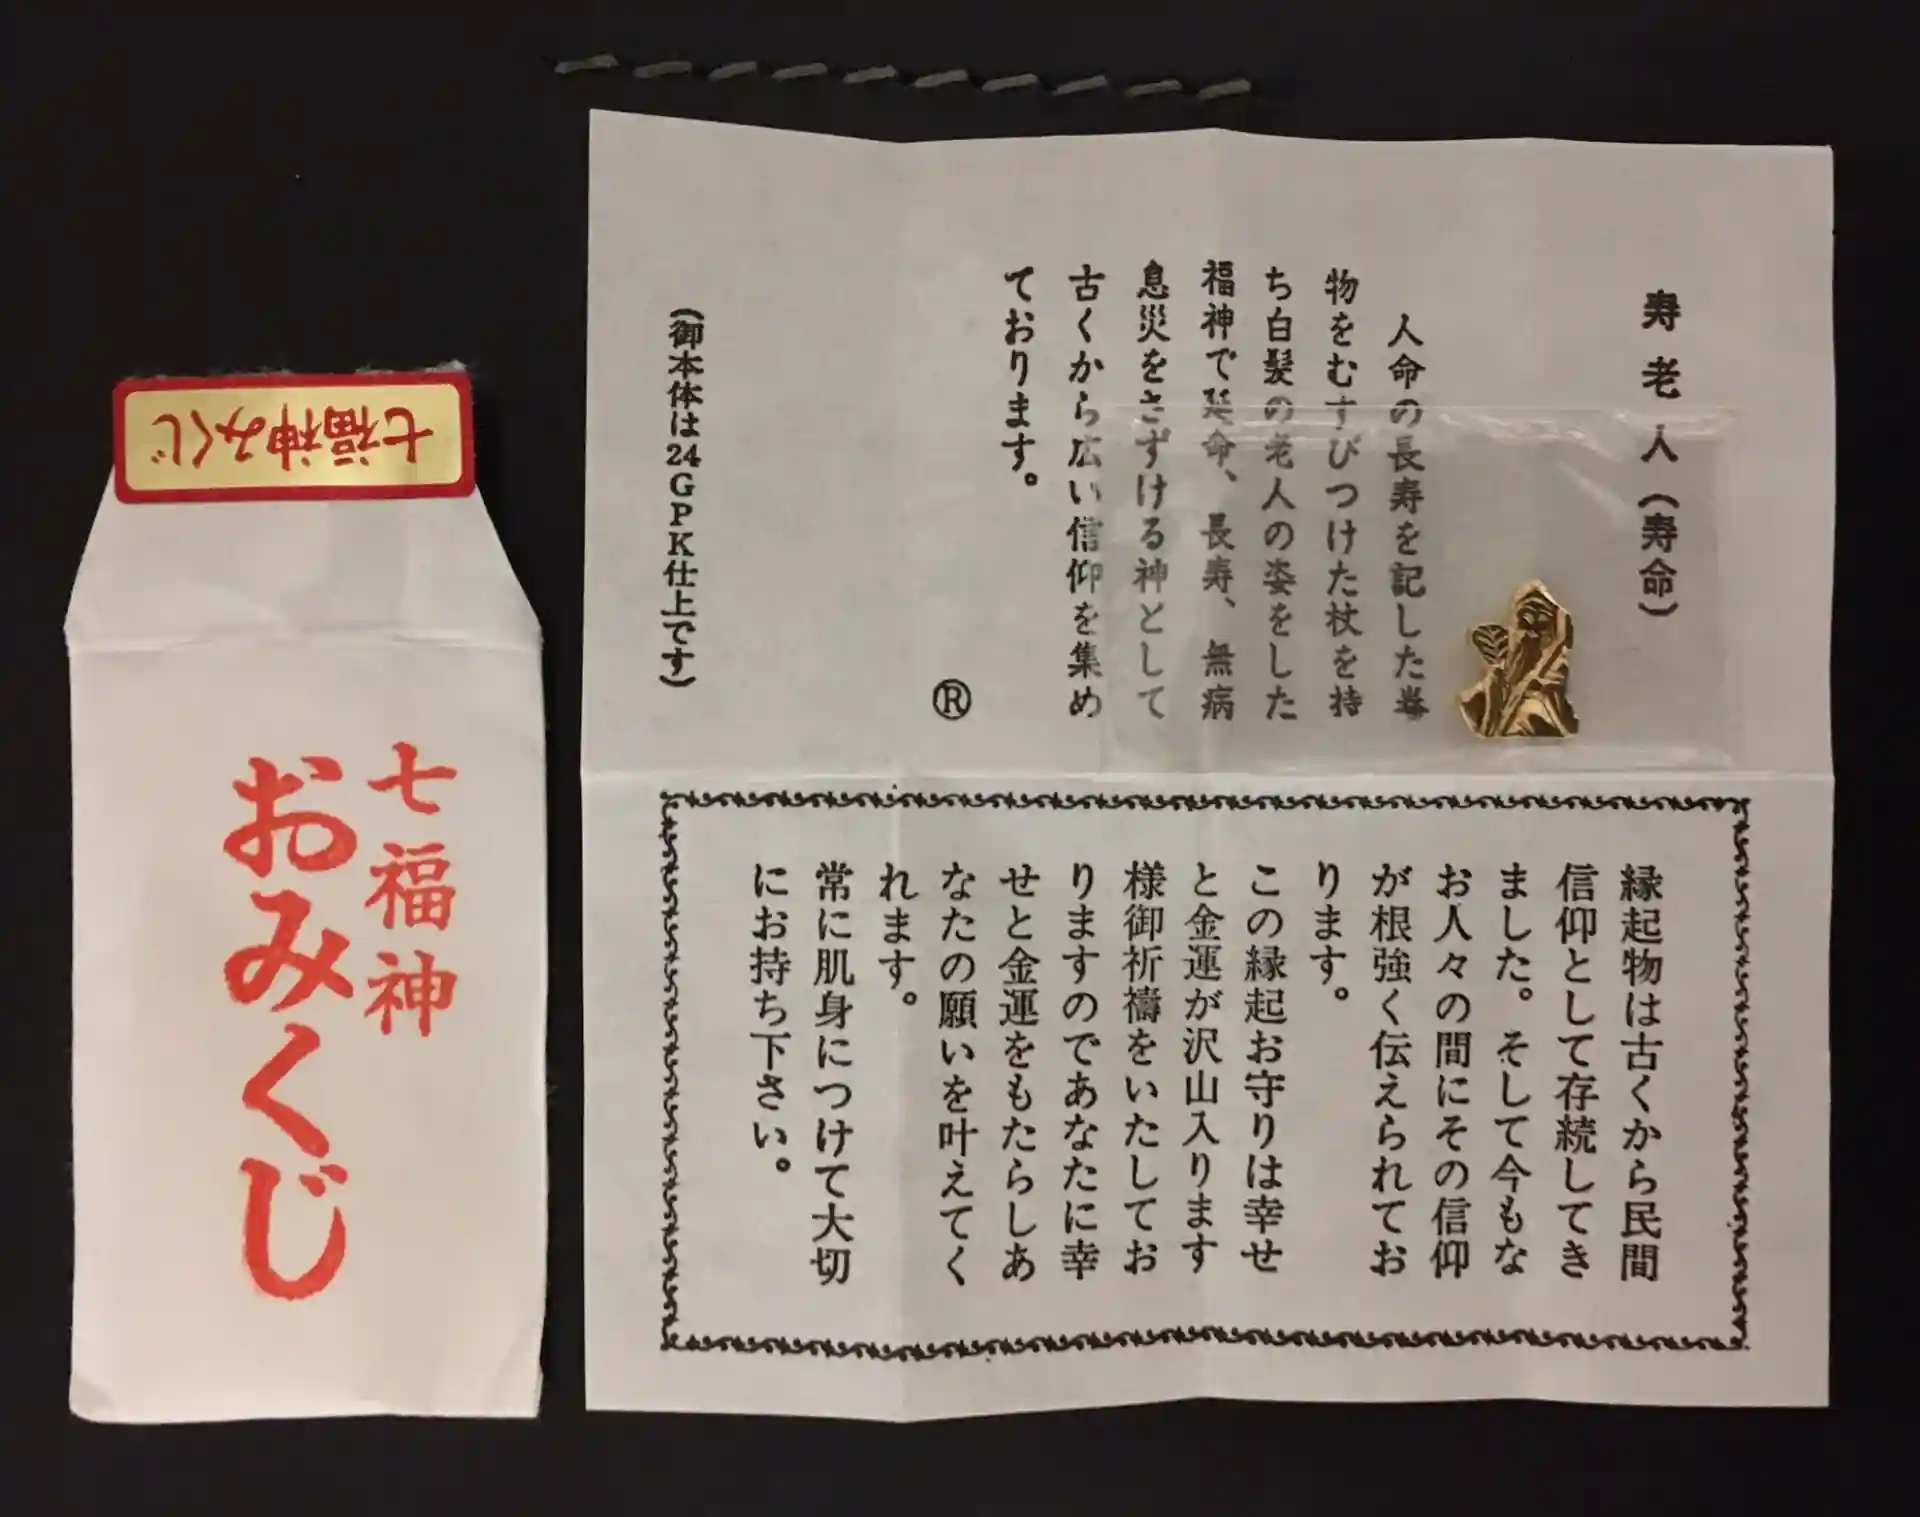 七福神みくじ
七福神
おみくじ
寿老人(寿命)
人命の長寿を記した巻
物をむすびつけた杖を持
ち白髪の老人の姿をした
福神で延命、長寿、無病
息災をさずける神として
古くから広い信仰を集め
ております。
®
(御本体は24GPK仕上です)
縁起物は古くから民間
信仰として存続してき
ました。そして今もな
お人々の間にその信仰
が根強く伝えられてお
ります。
この縁起お守りは幸せ
と金運が沢山入ります
様御祈禱をいたしてお
りますのであなたに幸
せと金運をもたらしあ
なたの願いを叶えてく
れます。
常に肌身につけて大切
にお持ち下さい。